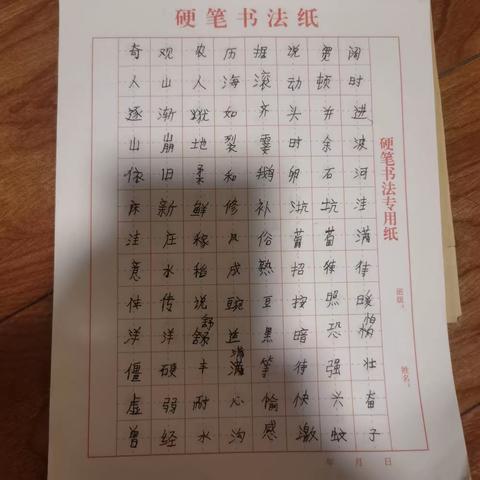 硬笔书法纸
奇观农历据说宽阔
人山人海滚动顿时
逐渐犹如齐头并进
山崩地裂霎时余波
依旧柔和鹅卵石河
床新鲜修补泥坑洼
洼庄稼风俗葡萄满
意水稻成熟招待佳
佳传说豌豆按照暖
洋洋舒适黑暗恐怕
僵硬丰满等待强壮
虚弱耐心愉快兴奋
曾经水沟感激蚊子
硬笔书法专用纸
班级：
姓名：
年 月 日